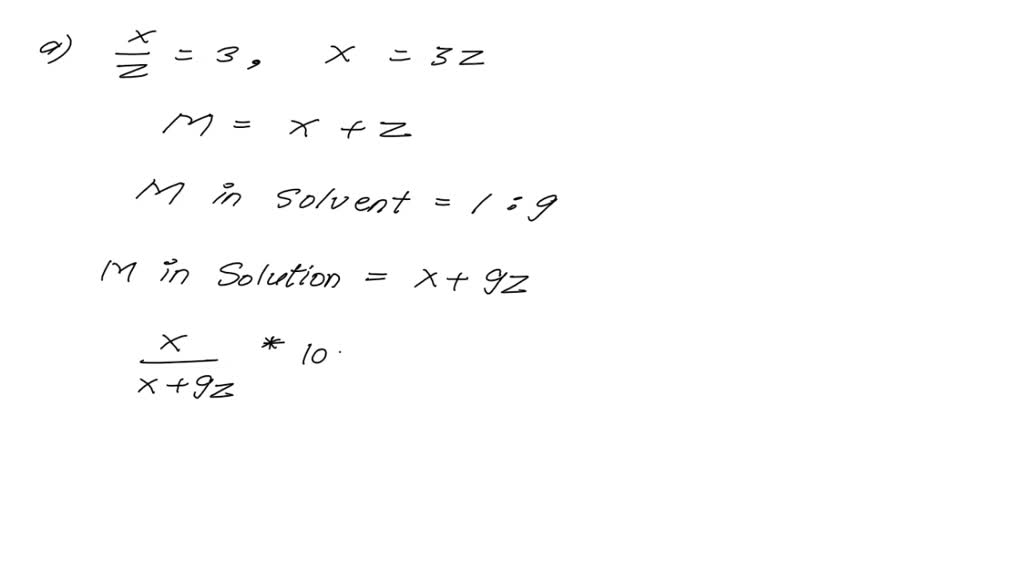 a) x/z = 3, x = 3z
M = x + z
M in solvent = 1 : 9
M in Solution = x + 9z
x/(x + 9z) * 10